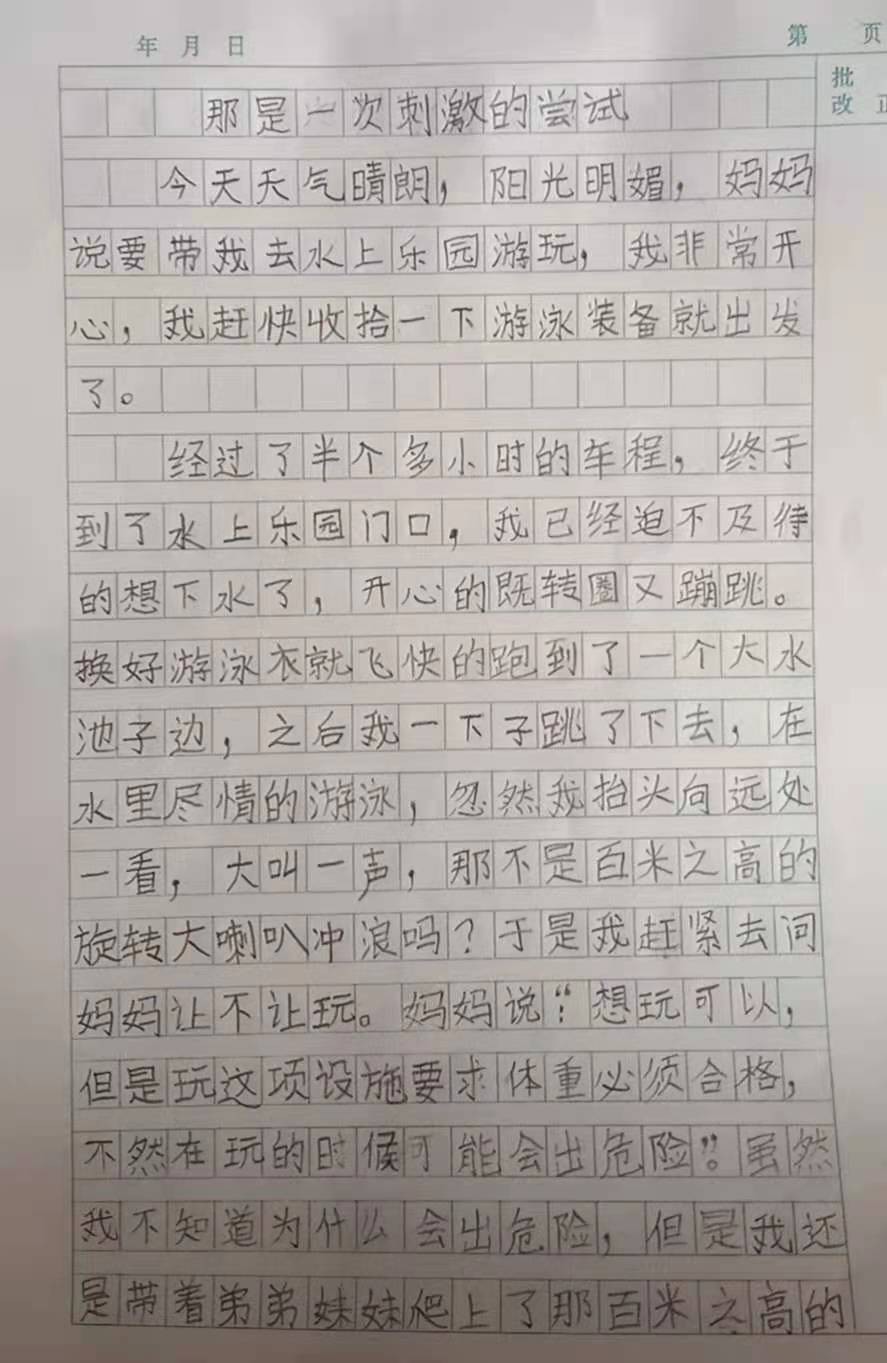 年 月 日
第 页
批
改 正
那是一次刺激的尝试
今天天气晴朗，阳光明媚，妈妈
说要带我去水上乐园游玩，我非常开
心，我赶快收拾一下游泳装备就出发
了。
经过了半个多小时的车程，终于
到了水上乐园门口，我已经迫不及待
的想下水了，开心的既转圈又蹦跳。
换好游泳衣就飞快的跑到了一个大水
池子边，之后我一下子跳了下去，在
水里尽情的游泳，忽然我抬头向远处
一看，大叫一声，那不是百米之高的
旋转大喇叭冲浪吗？于是我赶紧去问
妈妈让不让玩。妈妈说：“想玩可以，
但是玩这项设施要求体重必须合格，
不然在玩的时候可能会出危险”。虽然
我不知道为什么会出危险，但是我还
是带着弟弟妹妹爬上了那百米之高的